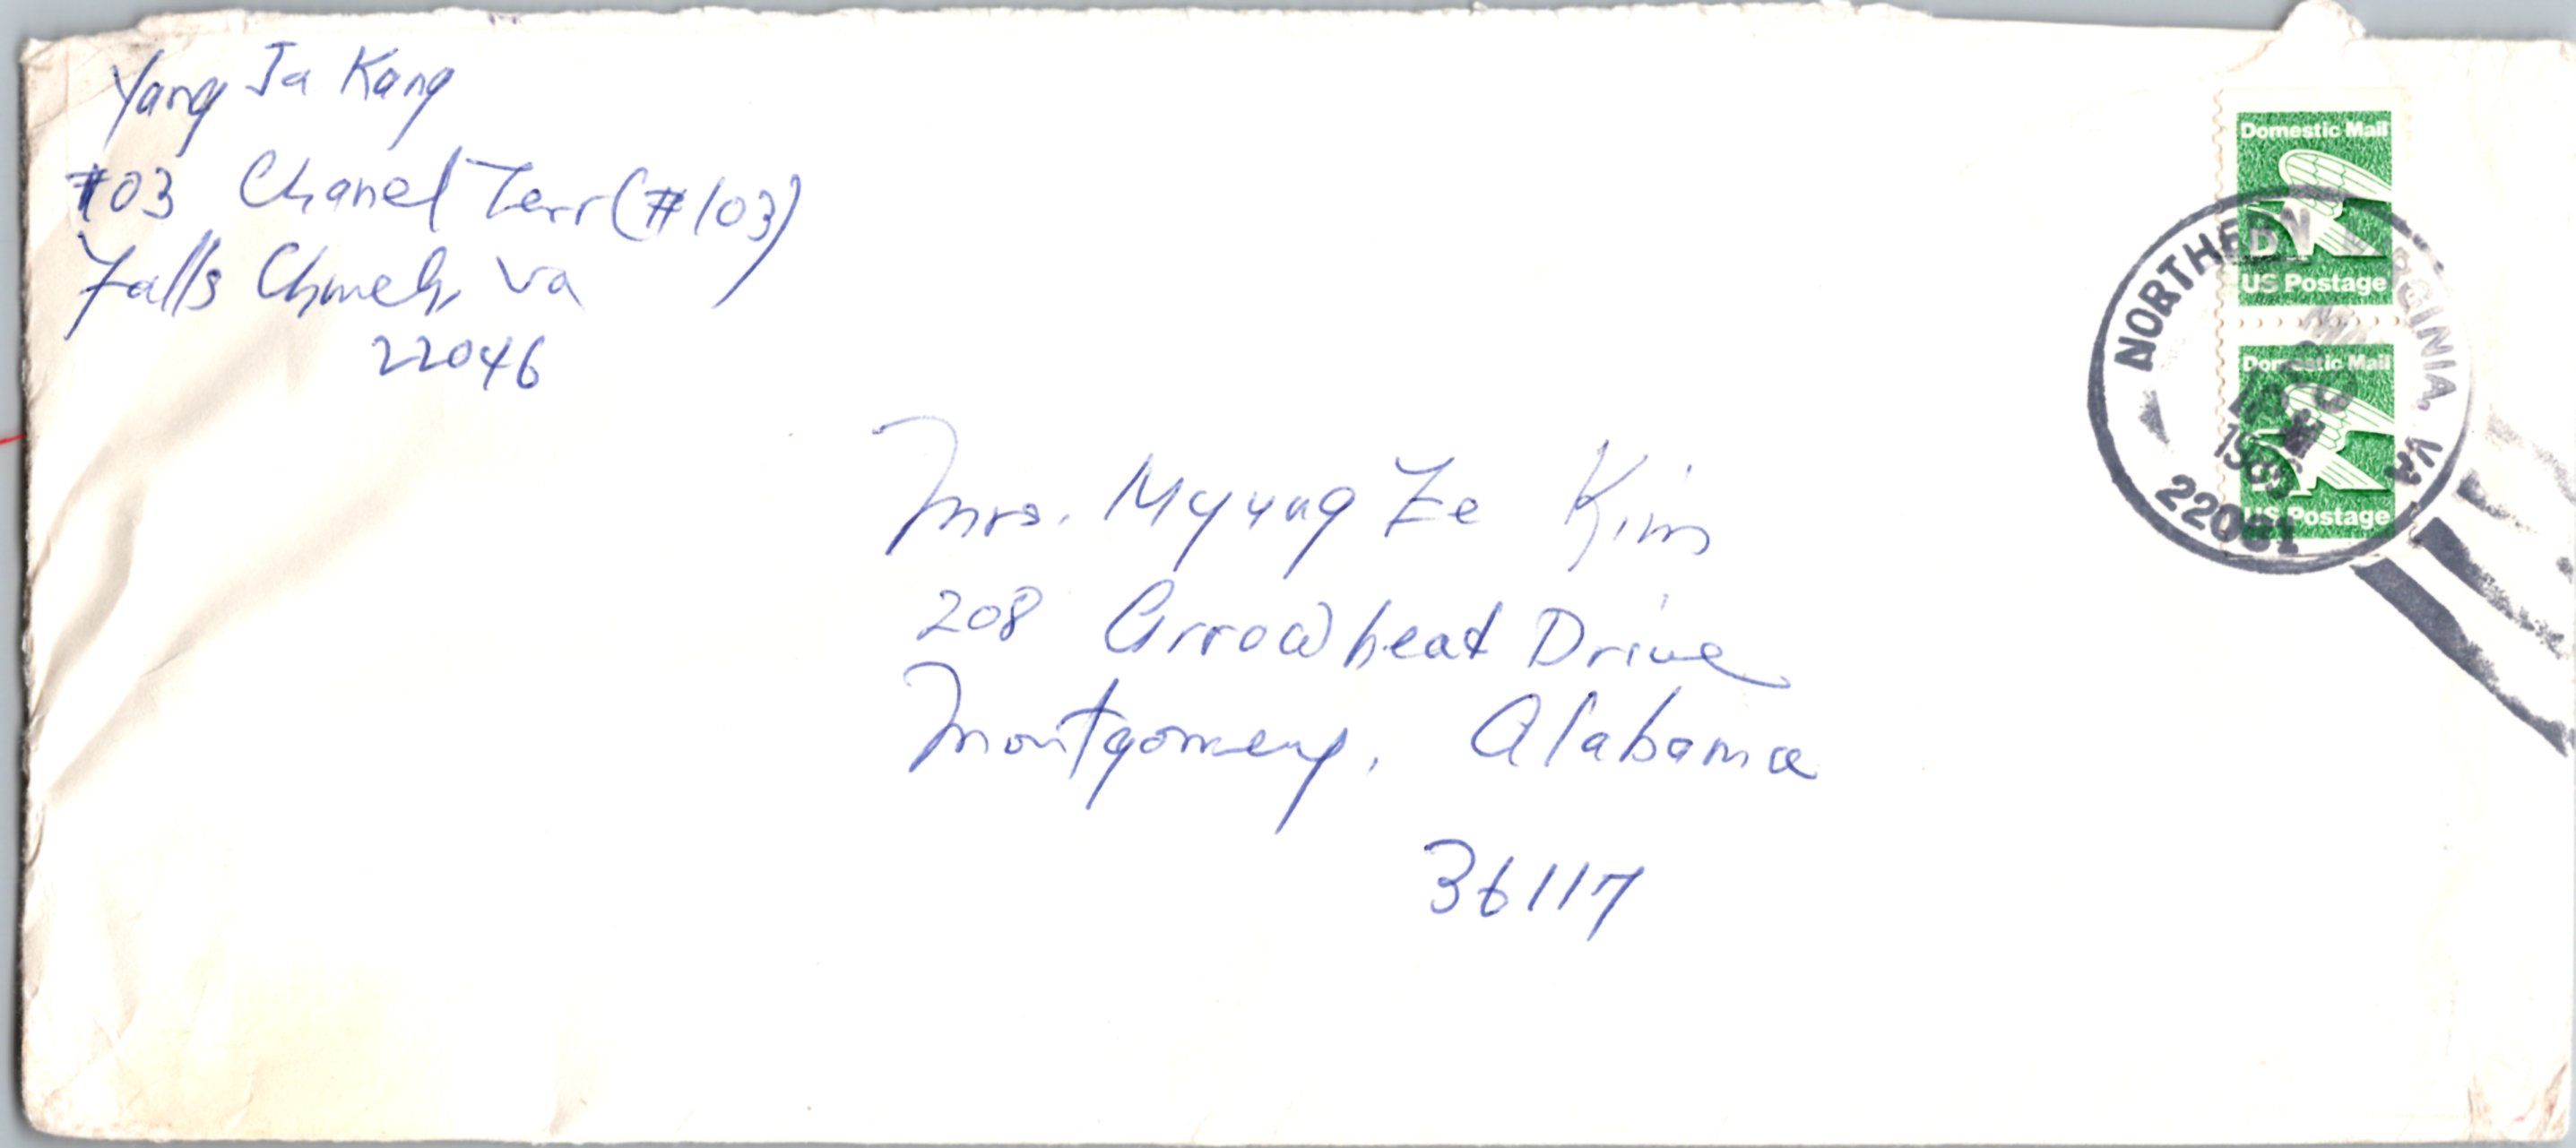 Yang Ja Kang
#03 Chanel Terr (#103)
Falls Church, Va
22046
Domestic Mail
D
US Postage
Domestic Mail
US Postage
NORTHERN VIRGINIA, VA
1985
22081
Mrs. Myung Ze Kim
208 Arrowheat Drive
Montgomery, Alabama
36117